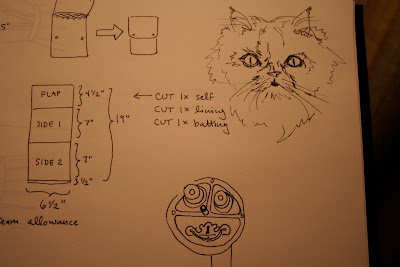 5"
FLAP
4½"
← CUT 1x self
CUT 1x lining
CUT 1x batting
SIDE 1
7"
19"
SIDE 2
7"
½"
6½"
seam allowance